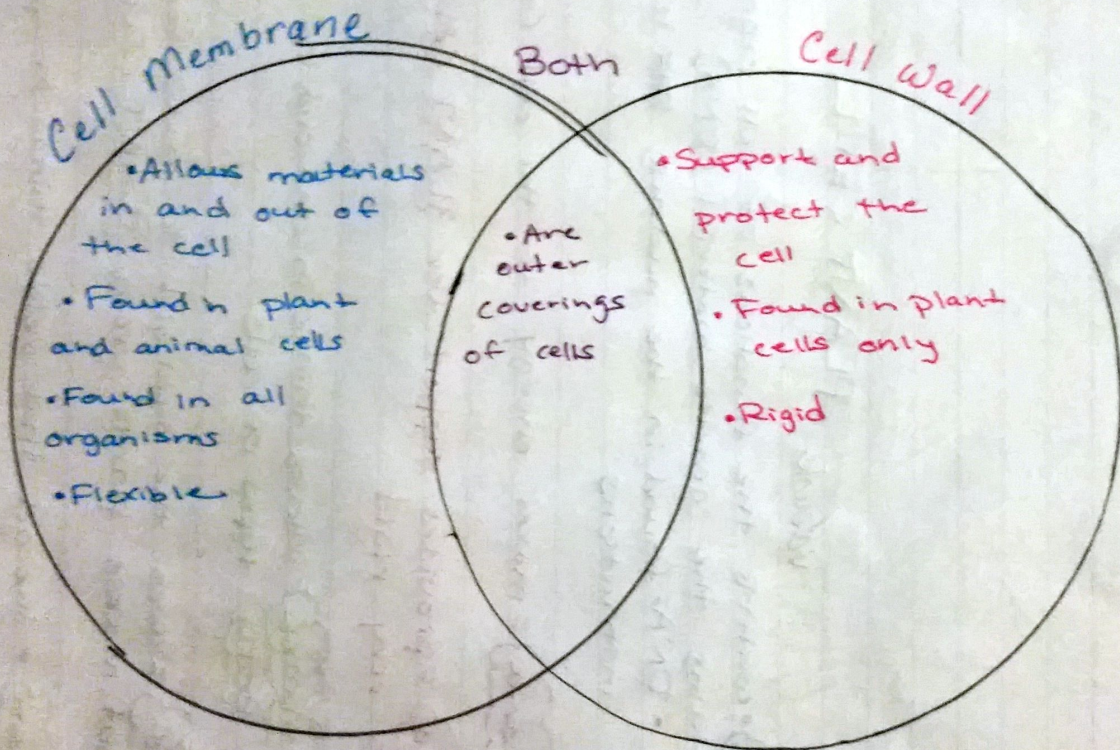 Cell Membrane
Both
Cell Wall
•Allows materials
in and out of
the cell
•Found n plant
and animal cells
•Found in all
organisms
•Flexible
•Are
outer
coverings
of cells
•Support and
protect the
cell
•Found in plant
cells only
•Rigid